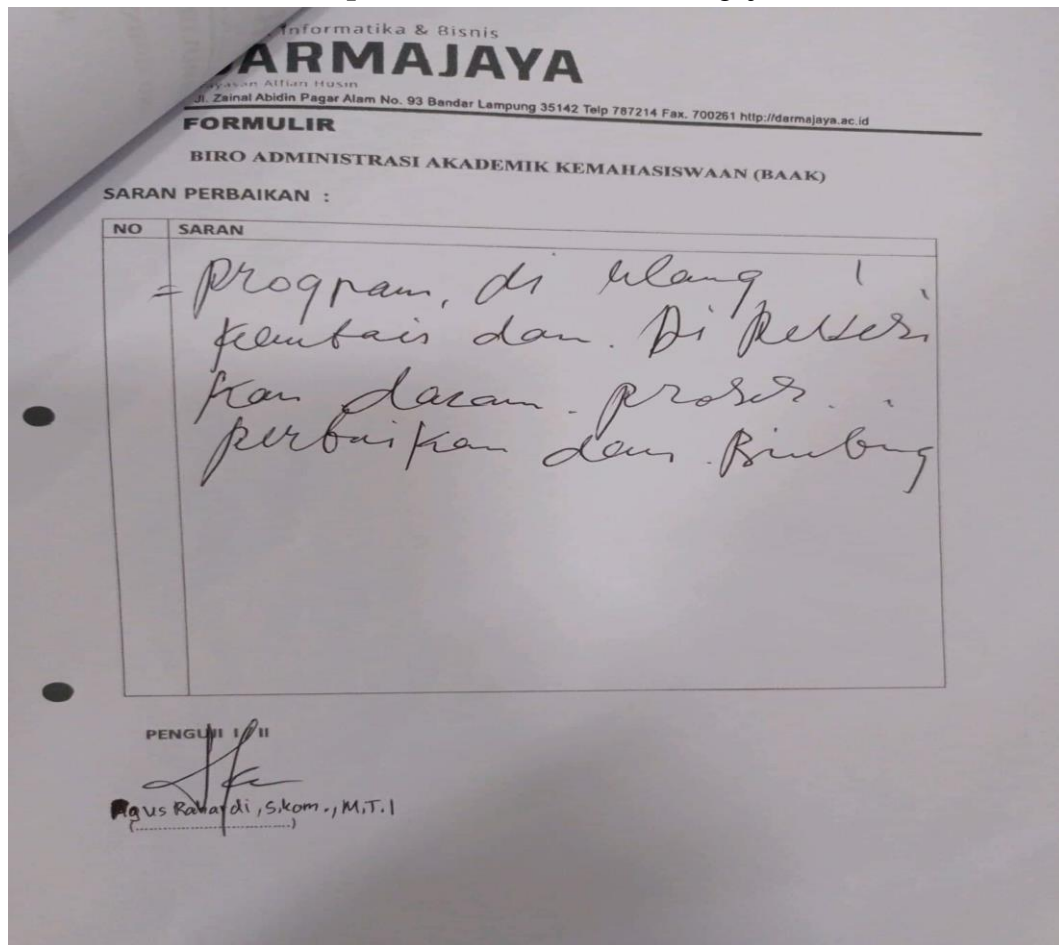 Informatika & Bisnis
DARMAJAYA
Yayasan Alfian Husin
Jl. Zainal Abidin Pagar Alam No. 93 Bandar Lampung 35142 Telp 787214 Fax. 700261 http://darmajaya.ac.id
FORMULIR
BIRO ADMINISTRASI AKADEMIK KEMAHASISWAAN (BAAK)
SARAN PERBAIKAN :
NO SARAN
= program, di ulang !
dan. Di
kan daram. proses.
perbaikan dan.
PENGUJI I / II
Agus Rahardi, S.kom., M.T.I
(..............................)